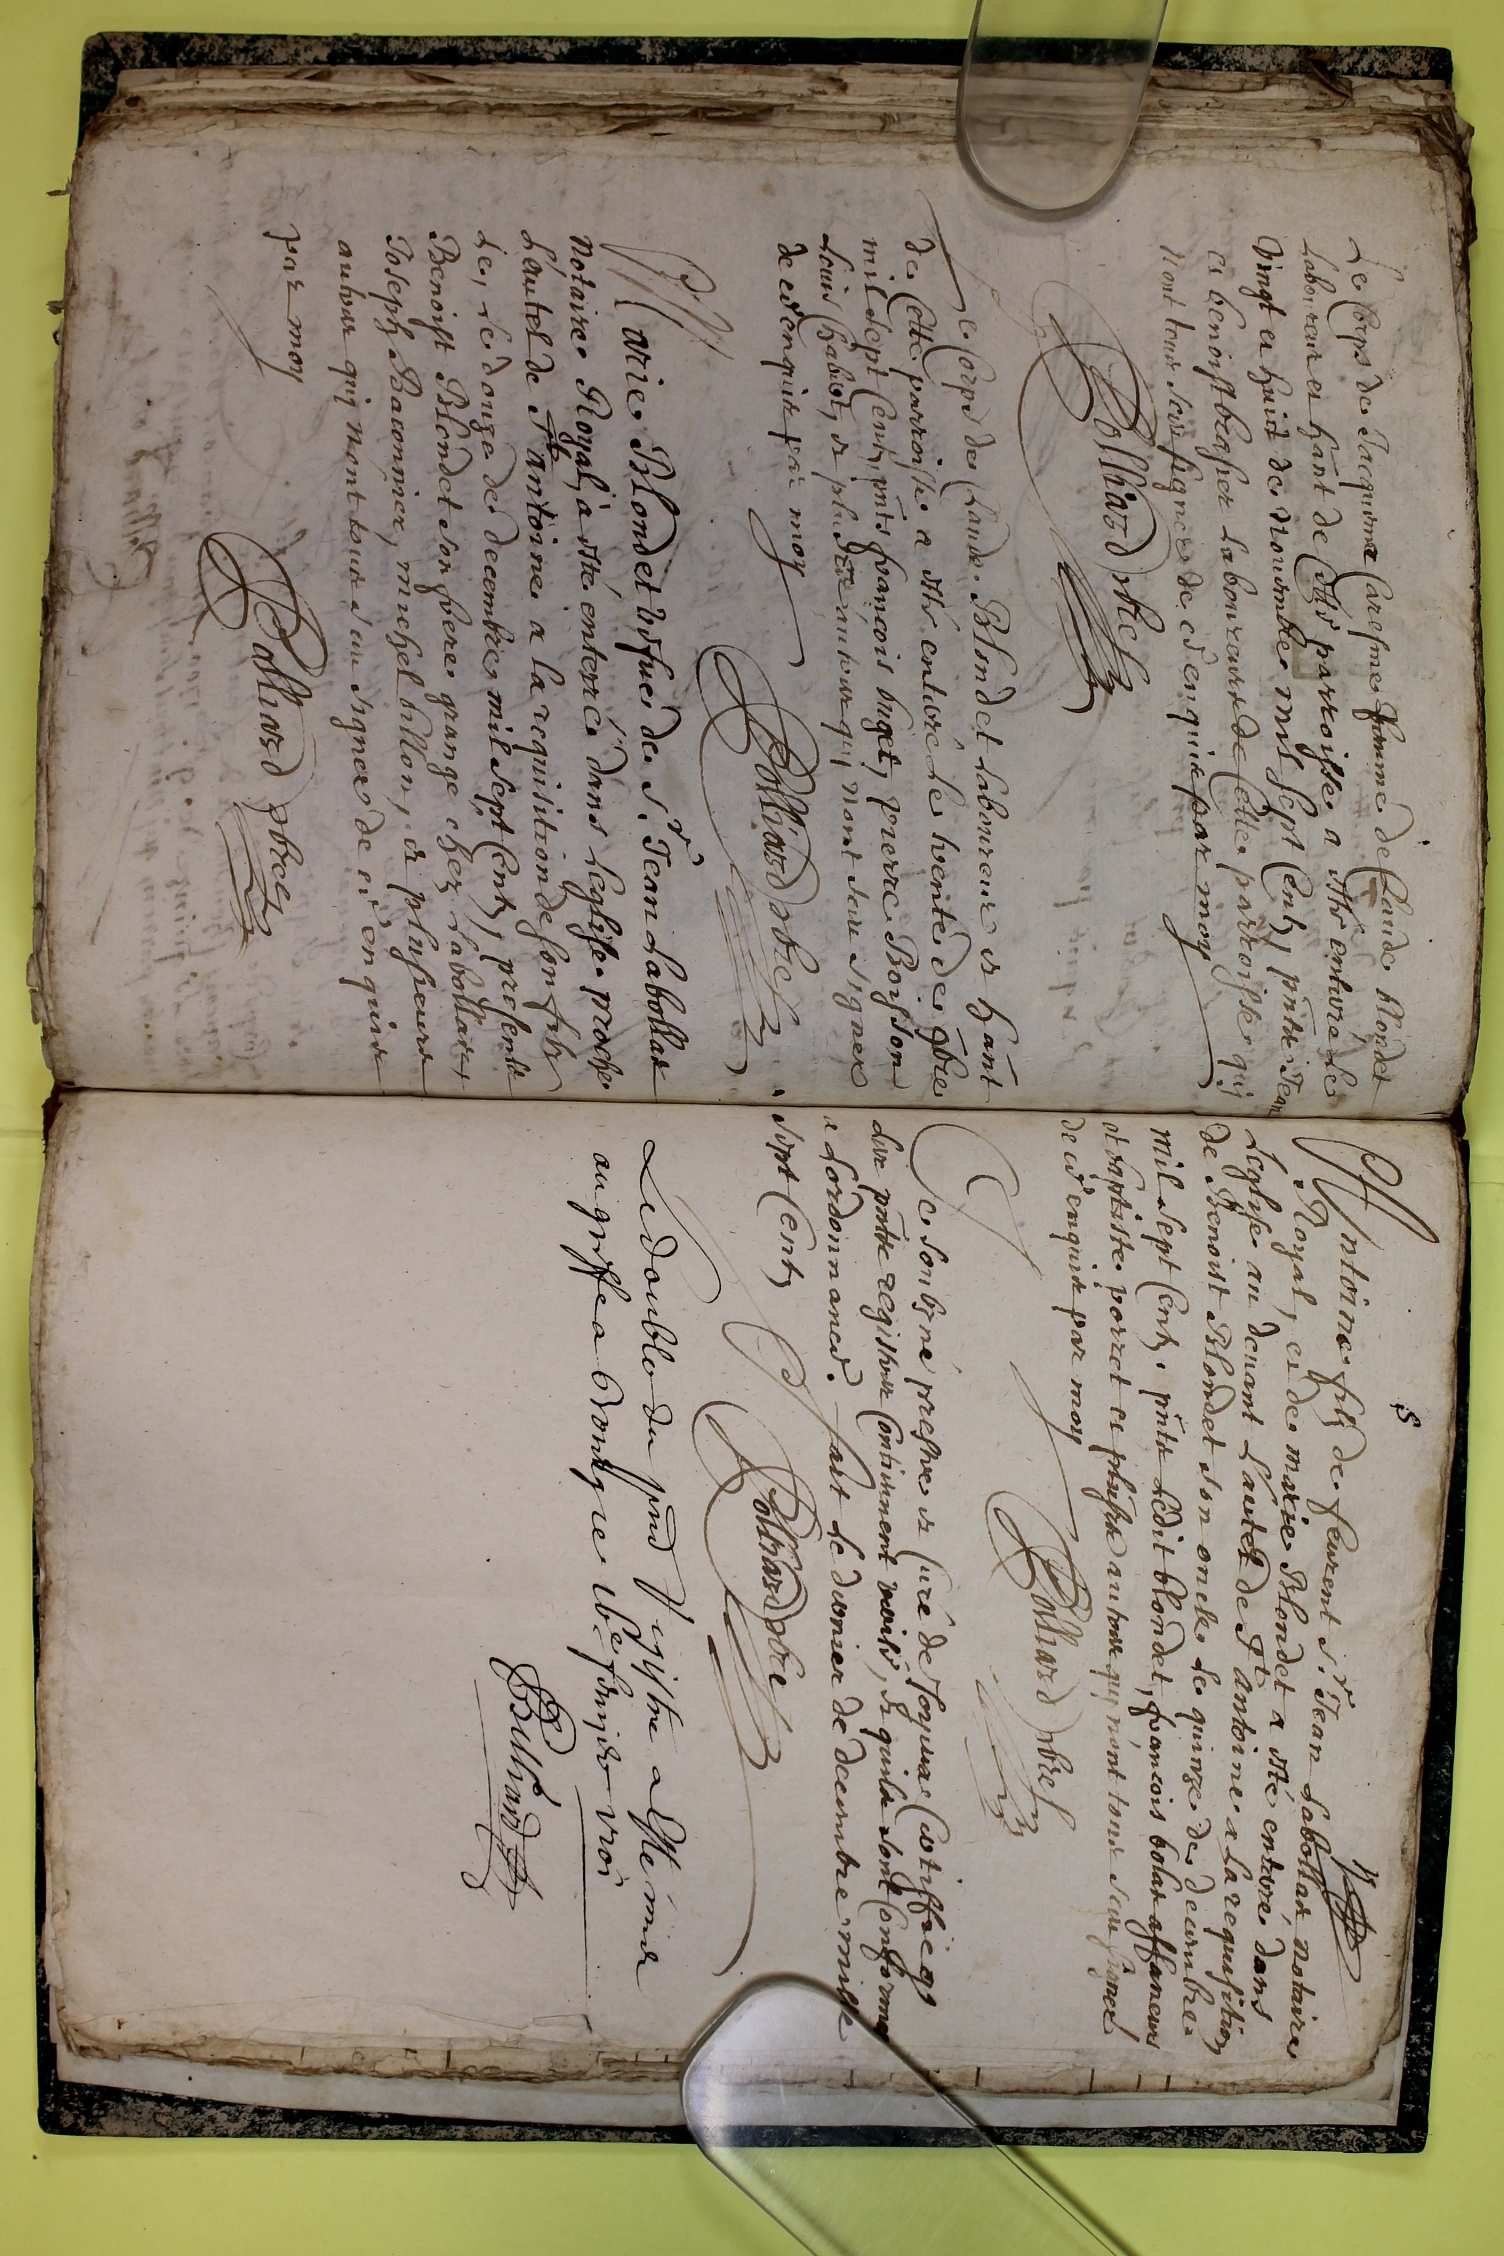 Le Corps de Jacquema Caresme femme de Claude blondet
Laboureur et hant de Cette parroisse a esté enterré le
vingt et huict de nouembre mil sept Cents, pnts Jean
et benoist laboureurs de Cette parroisse quj
nont sceu signer de ce enquis par moy
Bolliard pbre
Le Corps de Claude Blondet laboureur et hant
de Cette parroisse a esté enterré le de xbre
mil sept Cents, pnts francois buget, pierre Boysson
Louis Chabot, et plusrs autres quj nont sceu signer
de ce enquis par moy
Bolliard pbre
Marie Blondet vefue de sr. Jean Labollar
Notaire Royal, a esté enterrée dans Leglise proche
L'autel de St antoine a la requisition de son fils
Le, Le douze de decembre mil sept Cents, presents
Benoist Blondet son frere grange chez Labollar,
Joseph Baconnier, michel billon, et plusieurs
autres quj nont sceu signer de ce enquis
par moy
Bolliard pbre
8
Antoine fils de feurent sr. Jean Labollar notaire
Royal, et de marie Blondet a esté enterré dans
Leglise au deuant L'autel de St antoine a La requisition
de Benoist Blondet son oncle le quinze de decembre
mil sept Cents. pnts Ledit blondet, francois bolar affaneurs
et baptiste porret et plusrs autres quj nont sceu signer
de ce enquis par moy
Bolliard pbre
Je soubsigné prestre et Curé de Certiffie q
Les pnts registres Contiennent verité, et quils sont Conforme
a Lordonnance. fait le dernier de decembre mille
sept Cents
Bolliard pbre
Le double du pnt Registre a Esté mis
au greffe a Bourg
Bolliard